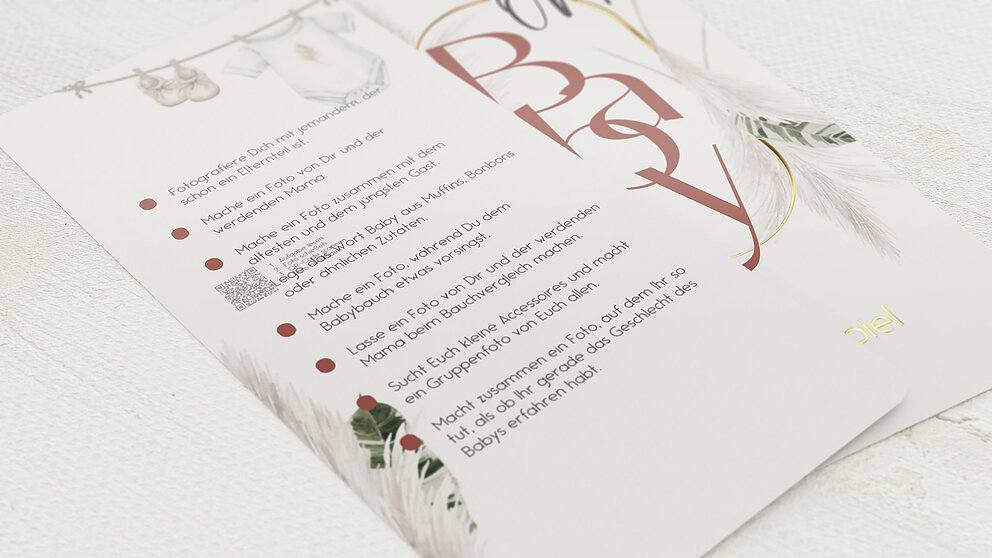 Fotografiere Dich mit jemandem, der
schon ein Elternteil ist.
Mache ein Foto von Dir und der
werdenden Mama.
Mache ein Foto zusammen mit dem
ältesten und dem jüngsten Gast.
ege das Wort Baby aus Muffins, Bonbons
oder ähnlichen Zutaten.
1. Aufgabe lesen
2. Foto schießen
Mache ein Foto, während Du dem
Babybauch etwas vorsingst.
Lasse ein Foto von Dir und der werdenden
Mama beim Bauchvergleich machen.
Sucht Euch kleine Accessoires und macht
ein Gruppenfoto von Euch allen.
Macht zusammen ein Foto, auf dem Ihr so
tut, als ob Ihr gerade das Geschlecht des
Babys erfahren habt.
Baby
piel